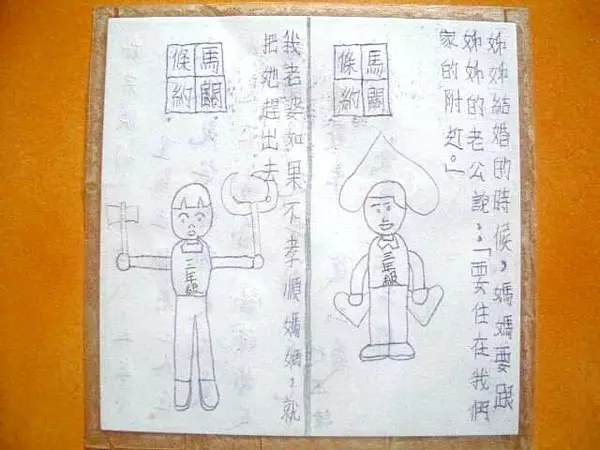 姊姊結婚的時候，媽媽要跟
姊姊的老公說：「要住在我們
家的附近。」
馬關
條約
三年級
我老婆如果不孝順媽媽，就
把她趕出去
馬關
條約
三年級